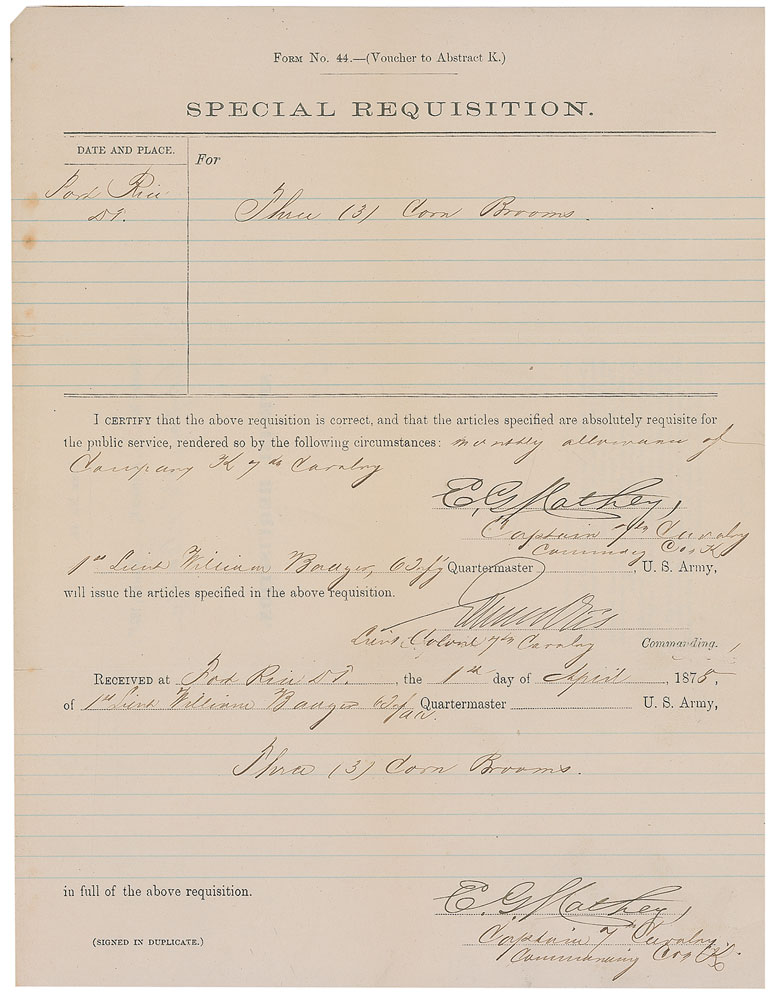 FORM NO. 44.—(Voucher to Abstract K.)
SPECIAL REQUISITION.
DATE AND PLACE.
For
Fort Rice
D.T.
Three (3) Corn Brooms.
I CERTIFY that the above requisition is correct, and that the articles specified are absolutely requisite for
the public service, rendered so by the following circumstances: monthly allowance of
Company K 7th Cavalry
E. G. Mathey,
Captain 7th Cavalry
Commdg Co. K
1st Lieut William Badger, 6 Infy Quartermaster , U. S. Army,
will issue the articles specified in the above requisition.
Lieut. Colonel 7th Cavalry Commanding.
RECEIVED at Fort Rice D.T. , the 1st day of April , 1875,
of 1st Lieut William Badger 6 Inf Quartermaster U. S. Army,
Three (3) Corn Brooms.
in full of the above requisition.
E. G. Mathey,
(SIGNED IN DUPLICATE.)
Captain 7 Cavalry.
Commanding Co. K.